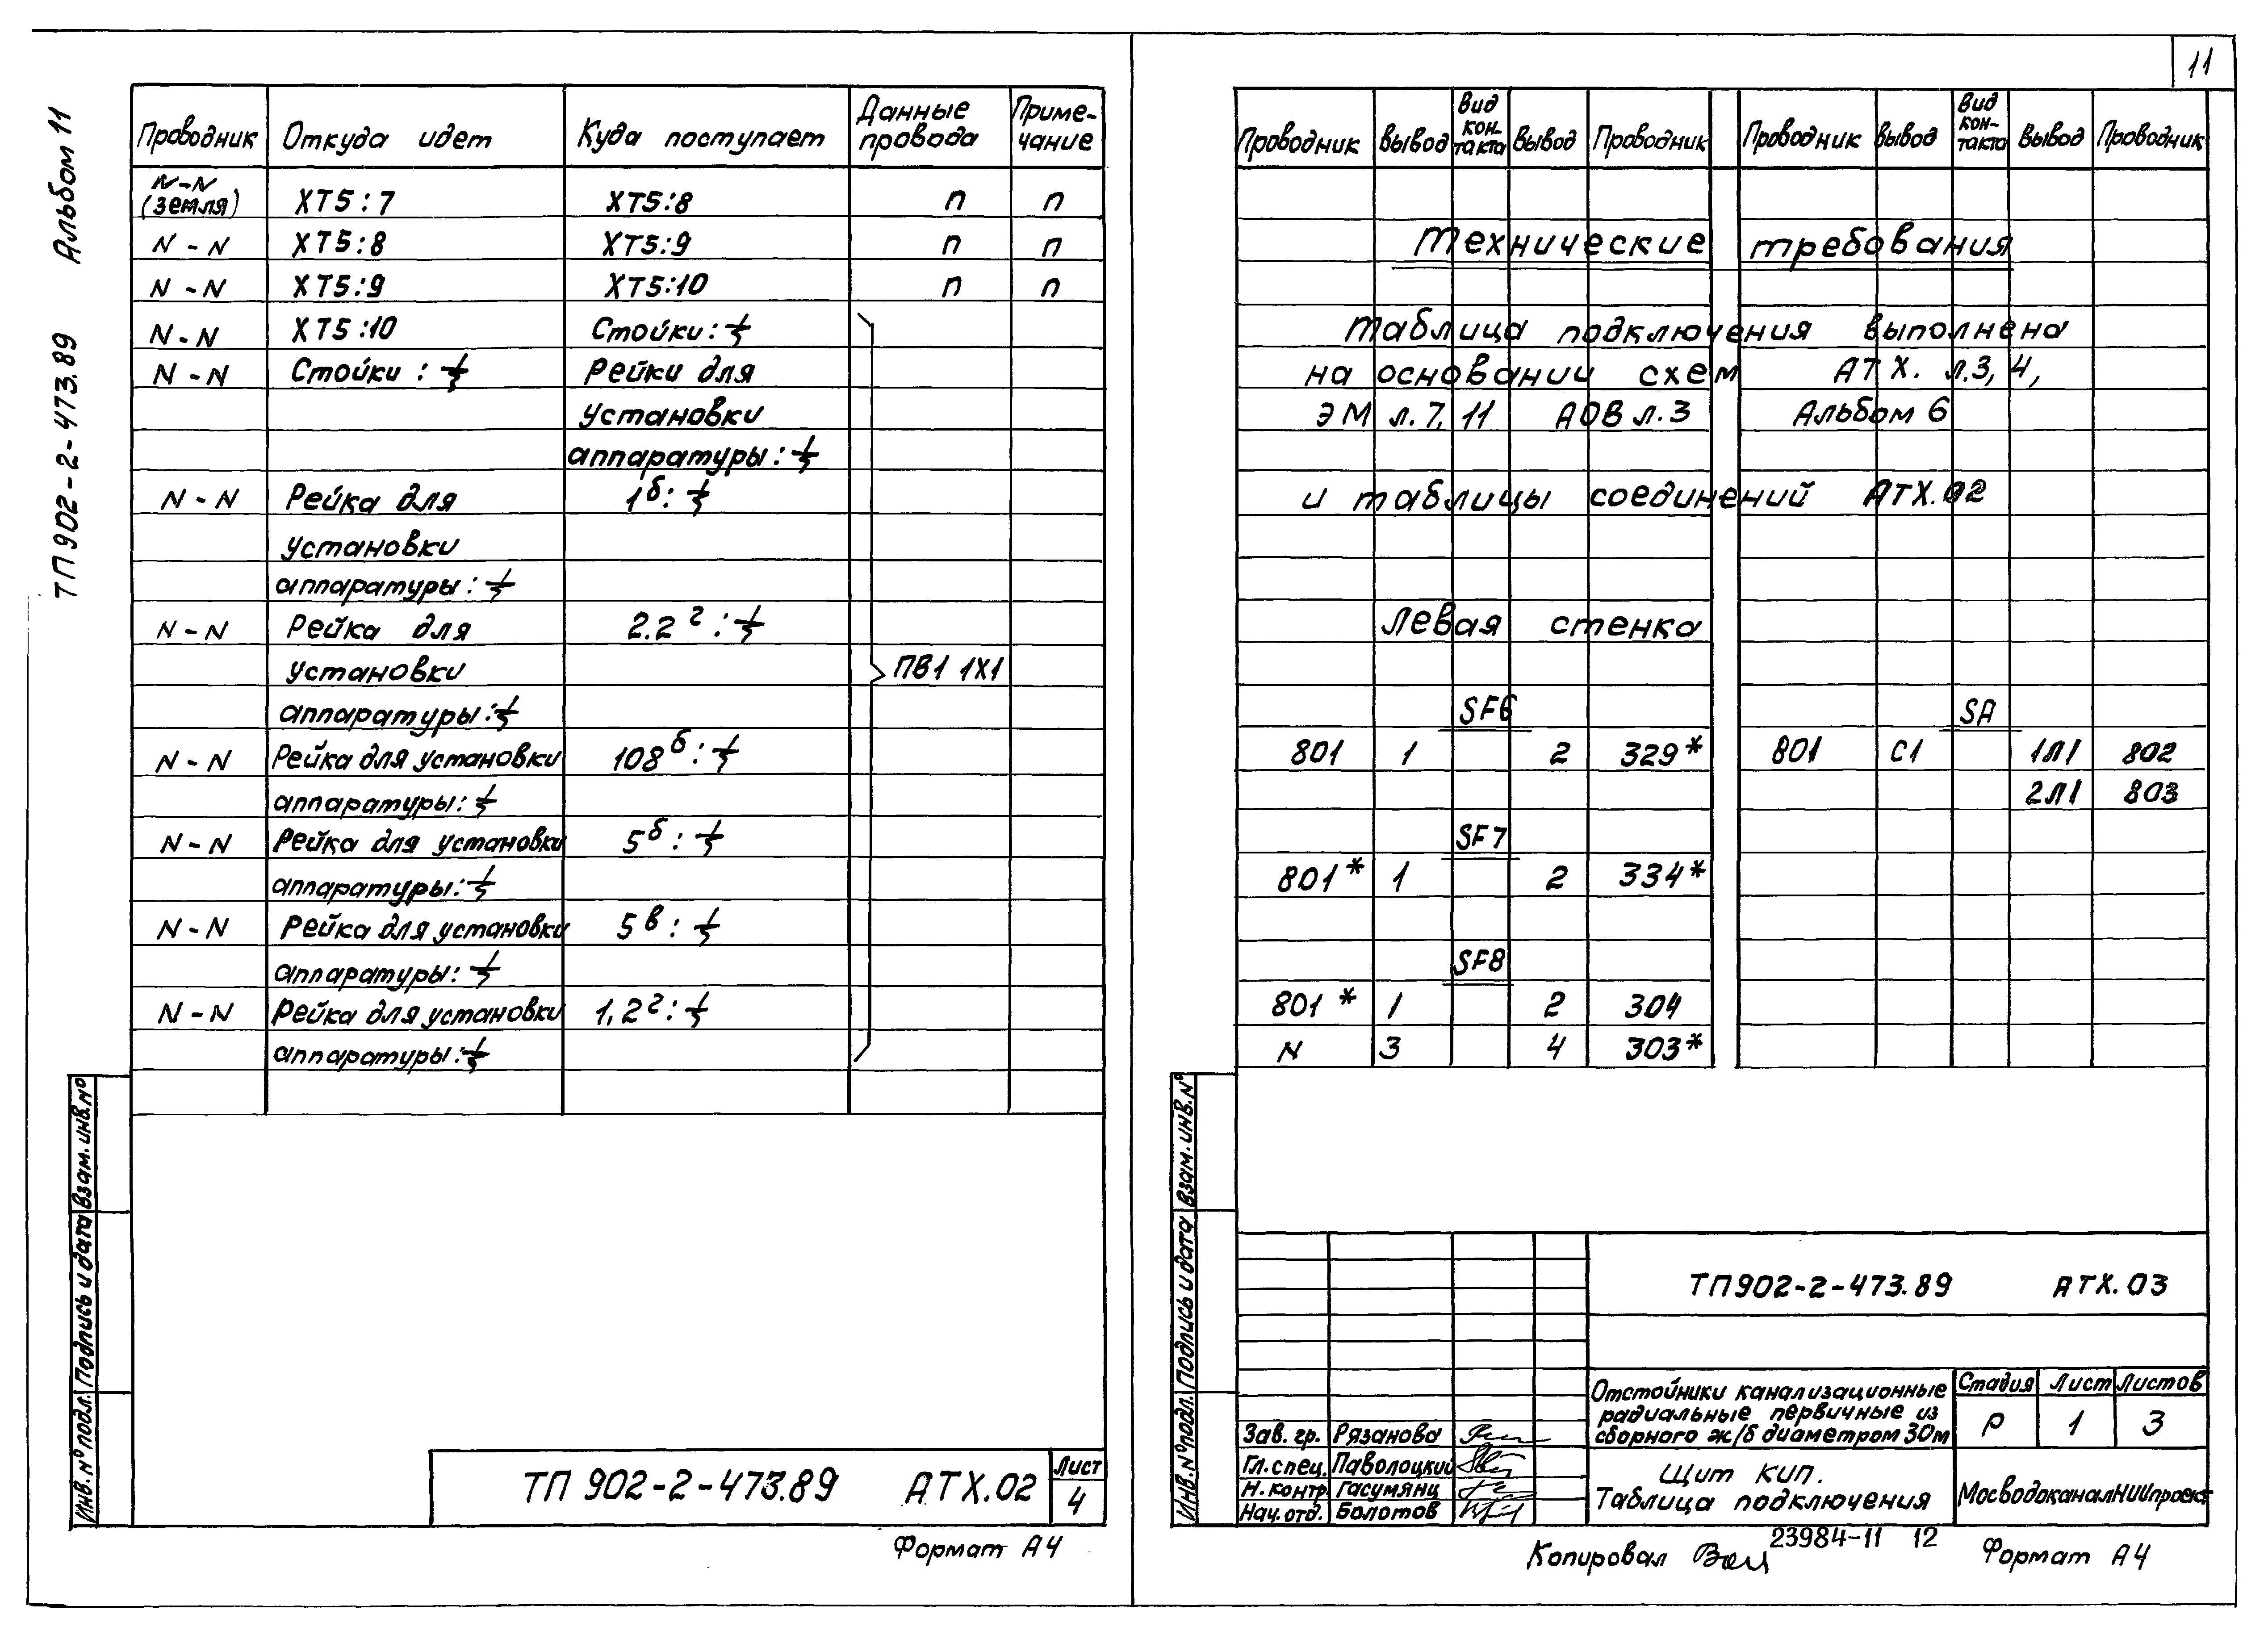 11
Альбом 11
ТП902-2-473.89
Проводник Откуда идет Куда поступает Данные провода Приме-чание
N-N (земля) ХТ5:7 ХТ5:8 п п
N-N ХТ5:8 ХТ5:9 п п
N-N ХТ5:9 ХТ5:10 п п
N-N ХТ5:10 Стойки:⏚
N-N Стойки:⏚ Рейки для
установки
аппаратуры:⏚
N-N Рейка для 1б:⏚
установки
аппаратуры:⏚
N-N Рейка для 2.2г:⏚
установки ПВ1 1Х1
аппаратуры:⏚
N-N Рейка для установки 108б:⏚
аппаратуры:⏚
N-N Рейка для установки 5б:⏚
аппаратуры:⏚
N-N Рейка для установки 5в:⏚
аппаратуры:⏚
N-N Рейка для установки 1,2г:⏚
аппаратуры:⏚
Взам. инв. №
Подпись и дата
Инв. № подл.
ТП 902-2-473.89 АТХ.02
Лист
4
Формат А4
Проводник Вывод Вид кон-такта Вывод Проводник Проводник Вывод Вид кон-такта Вывод Проводник
Технические требования
Таблица подключения выполнена
на основании схем АТХ. л.3, 4,
ЭМ л.7, 11 АОВ л.3 Альбом 6
и таблицы соединений АТХ.02
Левая стенка
SF6 SA
801 1 2 329* 801 С1 1Л1 802
2Л1 803
SF7
801* 1 2 334*
SF8
801* 1 2 304
N 3 4 303*
Взам. инв. №
Подпись и дата
Инв. № подл.
ТП902-2-473.89 АТХ.03
Отстойники канализационные
радиальные первичные из
сборного ж/б диаметром 30м
Стадия Лист Листов
Р 1 3
Зав. гр. Рязанова
Гл. спец. Паволоцкий
Н. контр. Гасумянц
Нач. отд. Болотов
Щит КИП.
Таблица подключения
МосводоканалНИИпроект
Копировал
23984-11 12
Формат А4